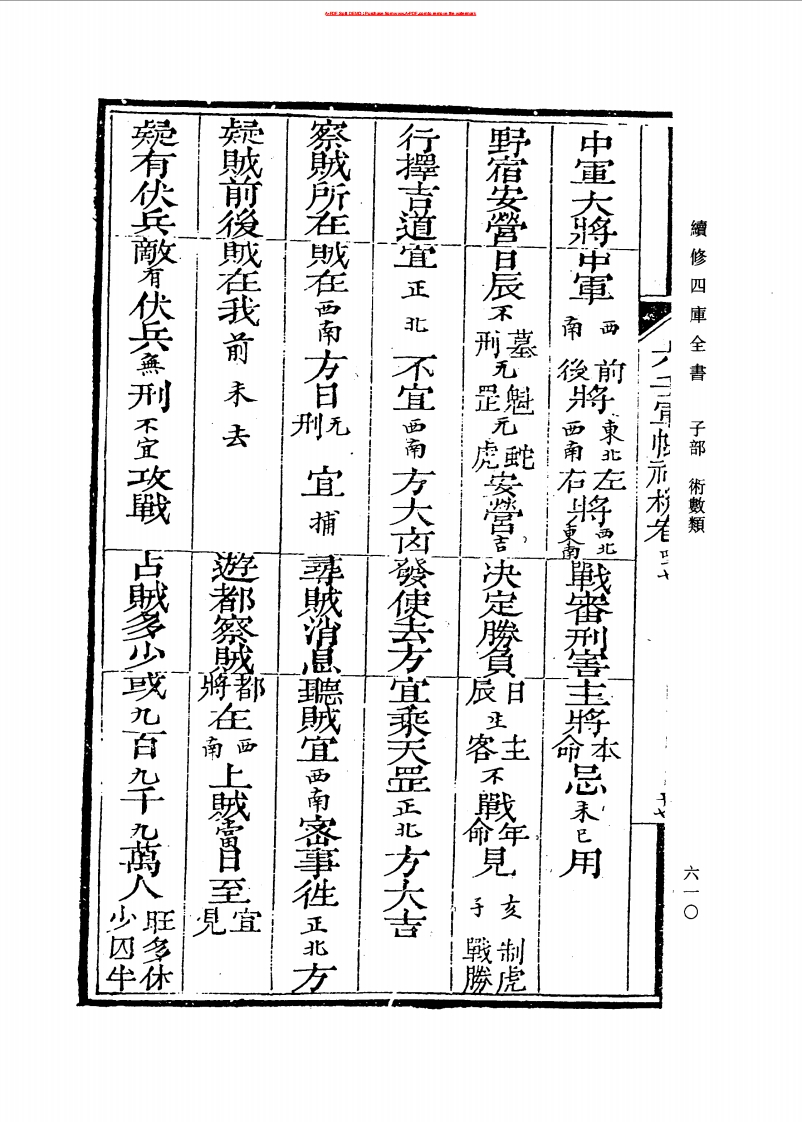 續修四庫全書 子部 術數類
六一〇
中軍大將中軍西南前將東北後將西南左將西北右將東南戰審刑害主將本命忌未已用
野宿安營日辰不墓刑无魁罡无蛇虎安營吉決定勝負日辰主客不戰年命見亥子制虎戰勝
行擇吉道宜正北不宜西南方大凶發使去方宜乘天罡正北方大吉
察賊所在賊在西南方日无刑宜捕尋賊消息聽賊宜西南密事徃正北方
疑賊前後賊在我前未去遊都察賊都將在西南上賊當日至宜見
疑有伏兵敵有伏兵無刑不宜攻戰占賊多少或九百九千九萬人旺多休少囚半